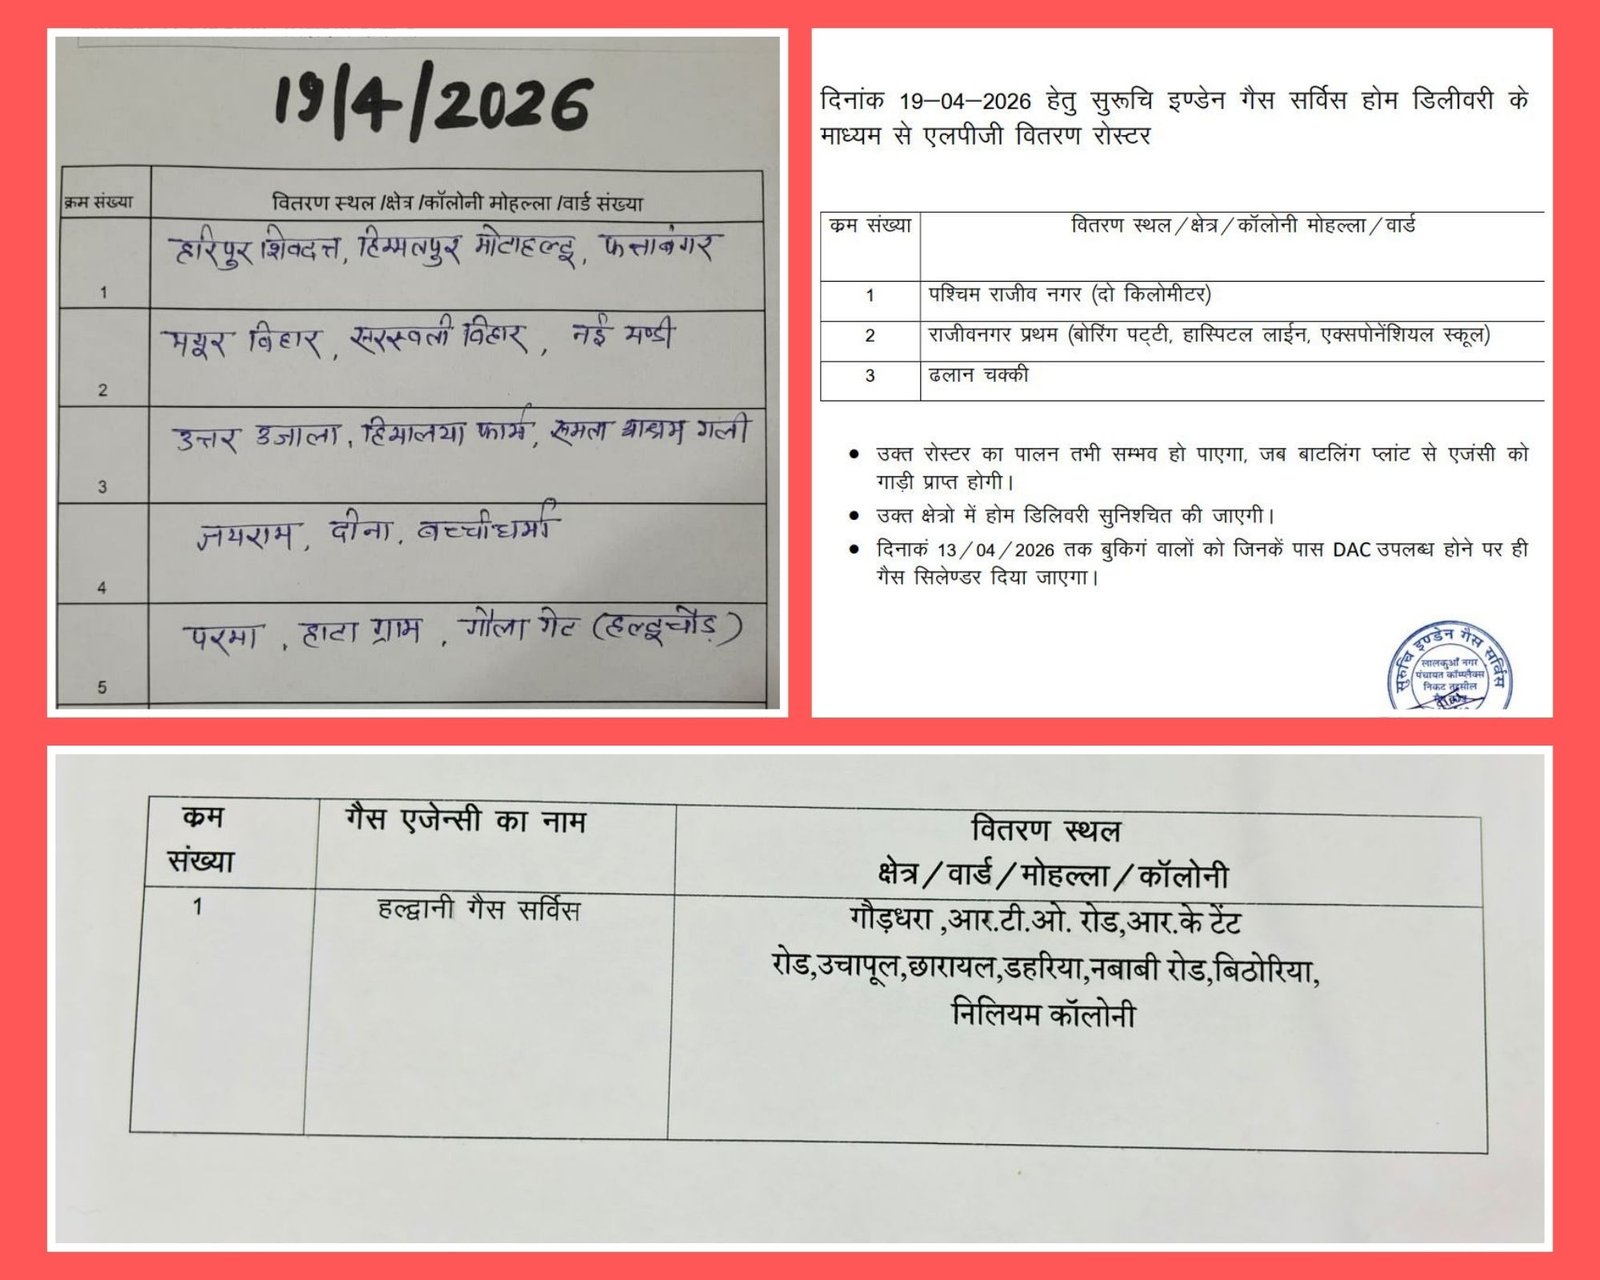 19/4/2026
क्रम संख्या वितरण स्थल /क्षेत्र /कॉलोनी मोहल्ला /वार्ड संख्या
1 हरिपुर शिवदत्त, हिम्मतपुर मोटाहल्दू, फत्ताबंगर
2 मयूर विहार, सरस्वती विहार, नई मण्डी
3 उत्तर उजाला, हिमालया फार्म, समता आश्रम गली
4 जयराम, दीना, बच्चीधर्मा
5 परमा, हाटा ग्राम, गौला गेट (हल्दूचौड़)
दिनांक 19–04–2026 हेतु सुरूचि इण्डेन गैस सर्विस होम डिलीवरी के
माध्यम से एलपीजी वितरण रोस्टर
क्रम संख्या वितरण स्थल/क्षेत्र/कॉलोनी मोहल्ला/वार्ड
1 पश्चिम राजीव नगर (दो किलोमीटर)
2 राजीवनगर प्रथम (बोरिंग पट्टी, हास्पिटल लाईन, एक्सपोनेंशियल स्कूल)
3 ढलान चक्की
● उक्त रोस्टर का पालन तभी सम्भव हो पाएगा, जब बाटलिंग प्लांट से एजंसी को
गाड़ी प्राप्त होगी।
● उक्त क्षेत्रो में होम डिलिवरी सुनिश्चित की जाएगी।
● दिनाकं 13/04/2026 तक बुकिगं वालों को जिनकें पास DAC उपलब्ध होने पर ही
गैस सिलेण्डर दिया जाएगा।
सुरूचि इण्डेन गैस सर्विस
लालकुआँ नगर
पंचायत कॉम्प्लैक्स
निकट तहसील
क्रम
संख्या
गैस एजेन्सी का नाम
वितरण स्थल
क्षेत्र/वार्ड/मोहल्ला/कॉलोनी
1 हल्द्वानी गैस सर्विस गौड़धरा ,आर.टी.ओ. रोड,आर.के टेंट
रोड,उचापूल,छारायल,डहरिया,नबाबी रोड,बिठोरिया,
निलियम कॉलोनी